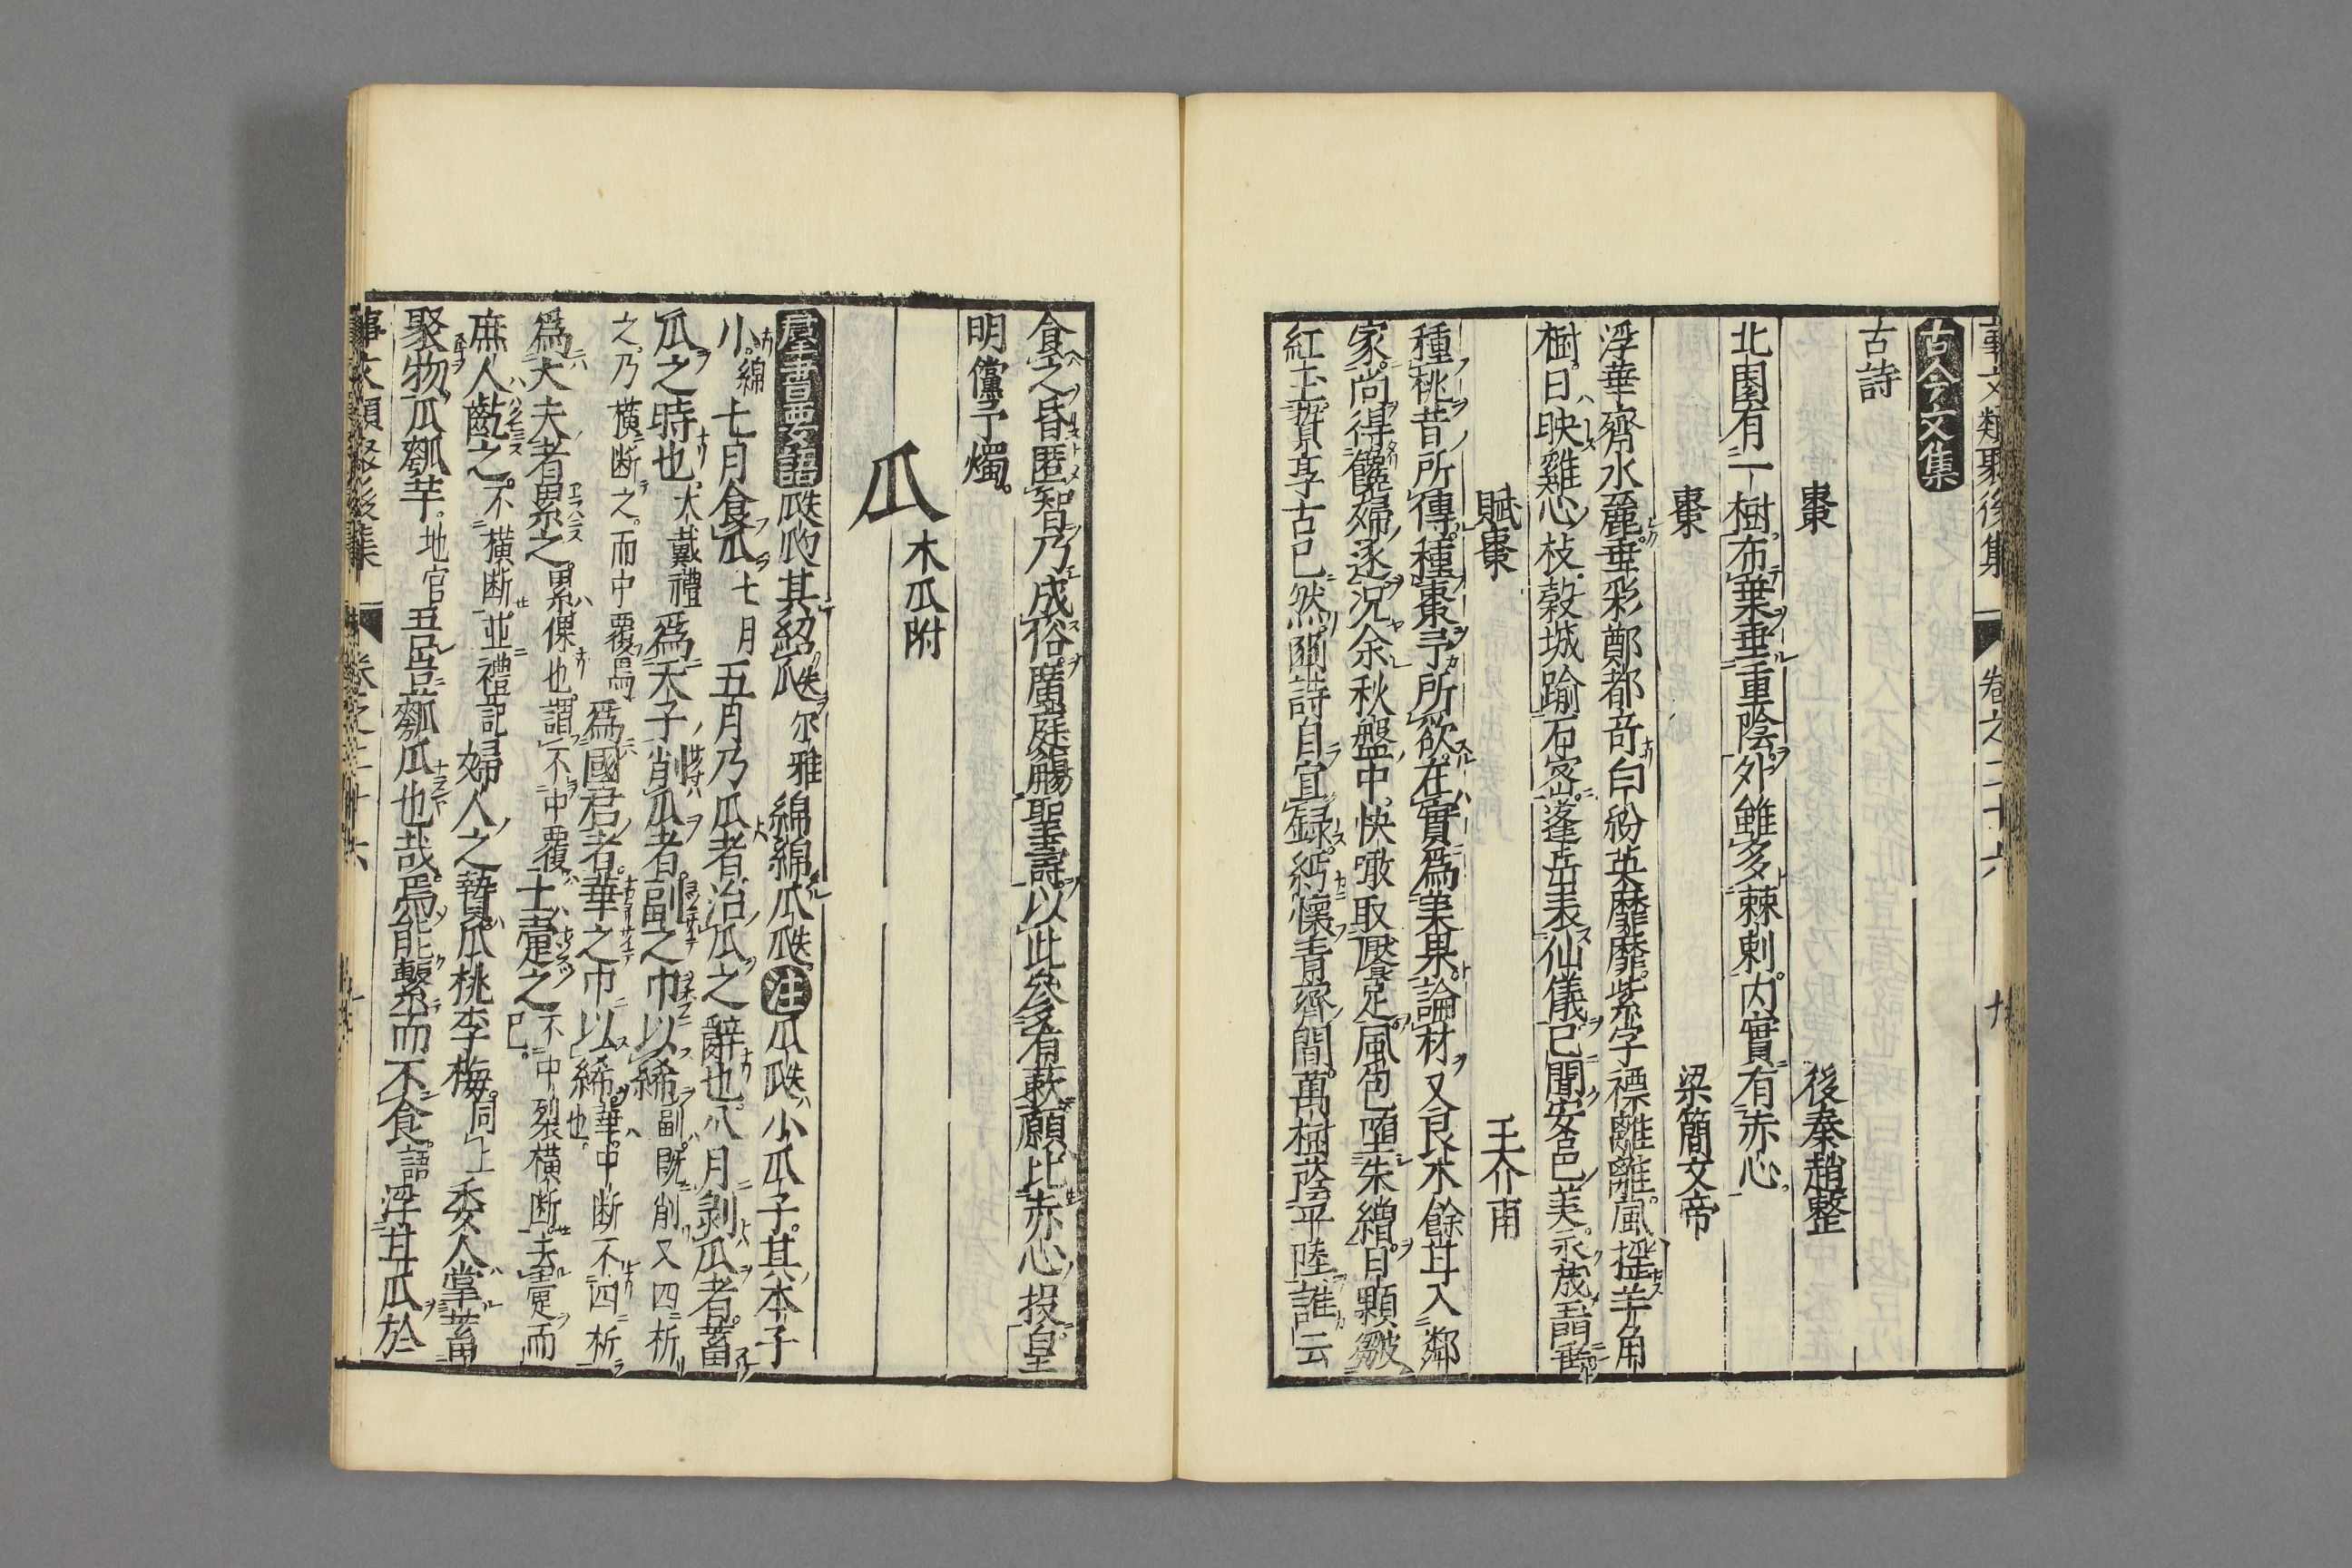 事文類聚後集 卷之二十六 九
古今文集
古詩
棗 後秦趙整
北園有一樹布葉垂重陰外雖多棘刺内實有赤心
棗 梁簡文帝
浮華齊水麗垂彩鄭都奇白紛英靡靡紫字標離離風搖羊角
樹日映雞心枝穀城踰石蜜蓬岳表仙儀已聞安邑美永茂玉門垂
賦棗 王介甫
種桃昔所傳種棗予所欲在實爲美果論材又良木餘甘入鄰
家尚得饞婦逐況余秋盤中快噉取饜足風包墮朱繒日顆皺
紅玉贄享古已然豳詩自宜録緬懷青齊間萬樹蔭平陸誰云
食之昏匿智乃成俗廣庭觴聖壽以此參肴蔌願比赤心投皇
明儻予燭
木瓜附
瓜
羣書要語 瓞瓝其紹瓞 尔雅 綿綿瓜瓞 注 瓜瓞小瓜子其本子
小 綿 七月食瓜 七月 五月乃瓜者治瓜之辭也八月剝瓜者蓄
瓜之時也 大戴禮 爲天子削瓜者副之巾以絺 副既削又四析
之乃橫断之而中覆焉 爲國君者華之巾以綌 華中断不四析也
爲大夫者累之 累倮也謂不中覆 士疐之 不中裂橫断去疐而已
庶人齕之 不橫断 並禮記 婦人之贄瓜桃李梅 同上 委人掌蓄
聚物瓜瓠芋 地官 吾豈瓠瓜也哉焉能繫而不食 語 浮甘瓜於
事文類聚後集 卷之二十六